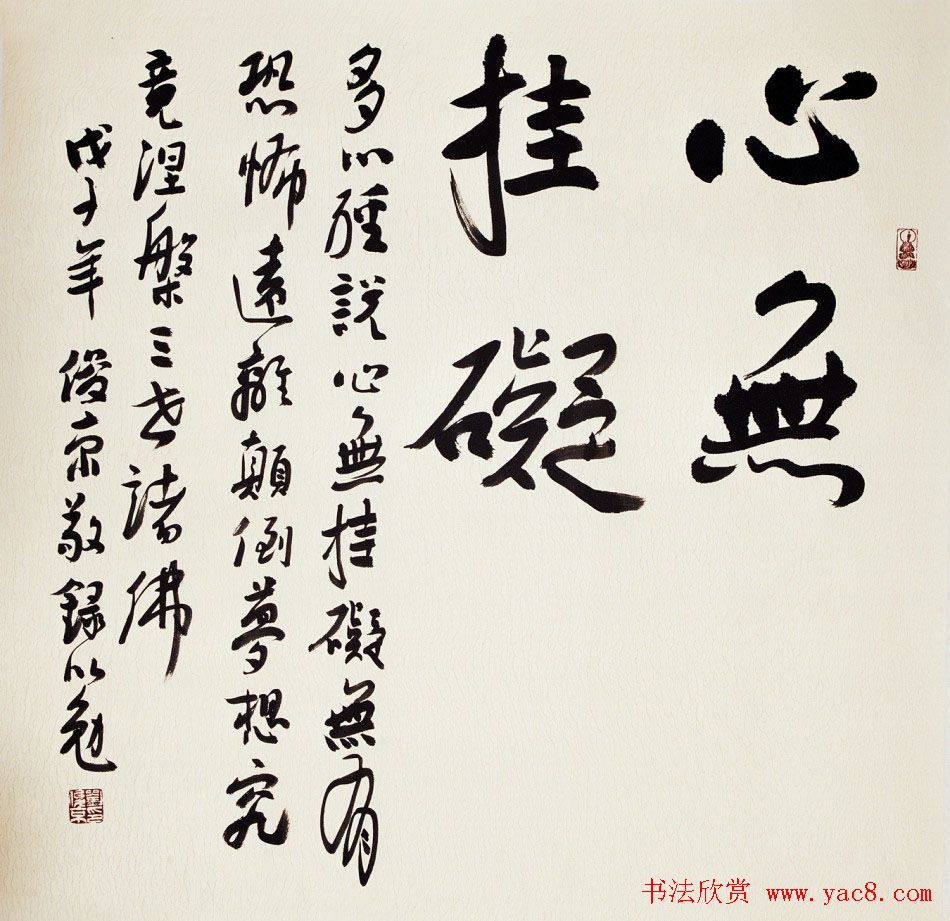 心無
挂礙
多心經說心無挂礙無有
恐怖遠離顛倒夢想究
竟涅槃三世諸佛
戊子年 俊京敬錄以勉
书法欣赏 www.yac8.com